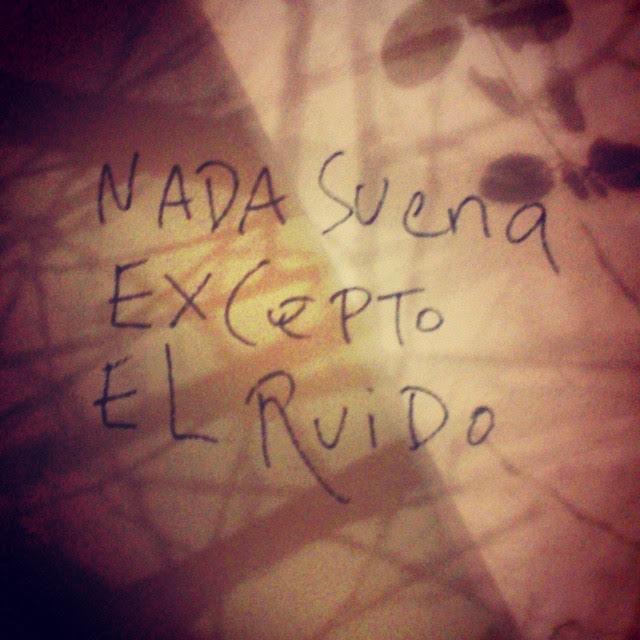 NADA Suena
EXCepTo
EL RuiDo